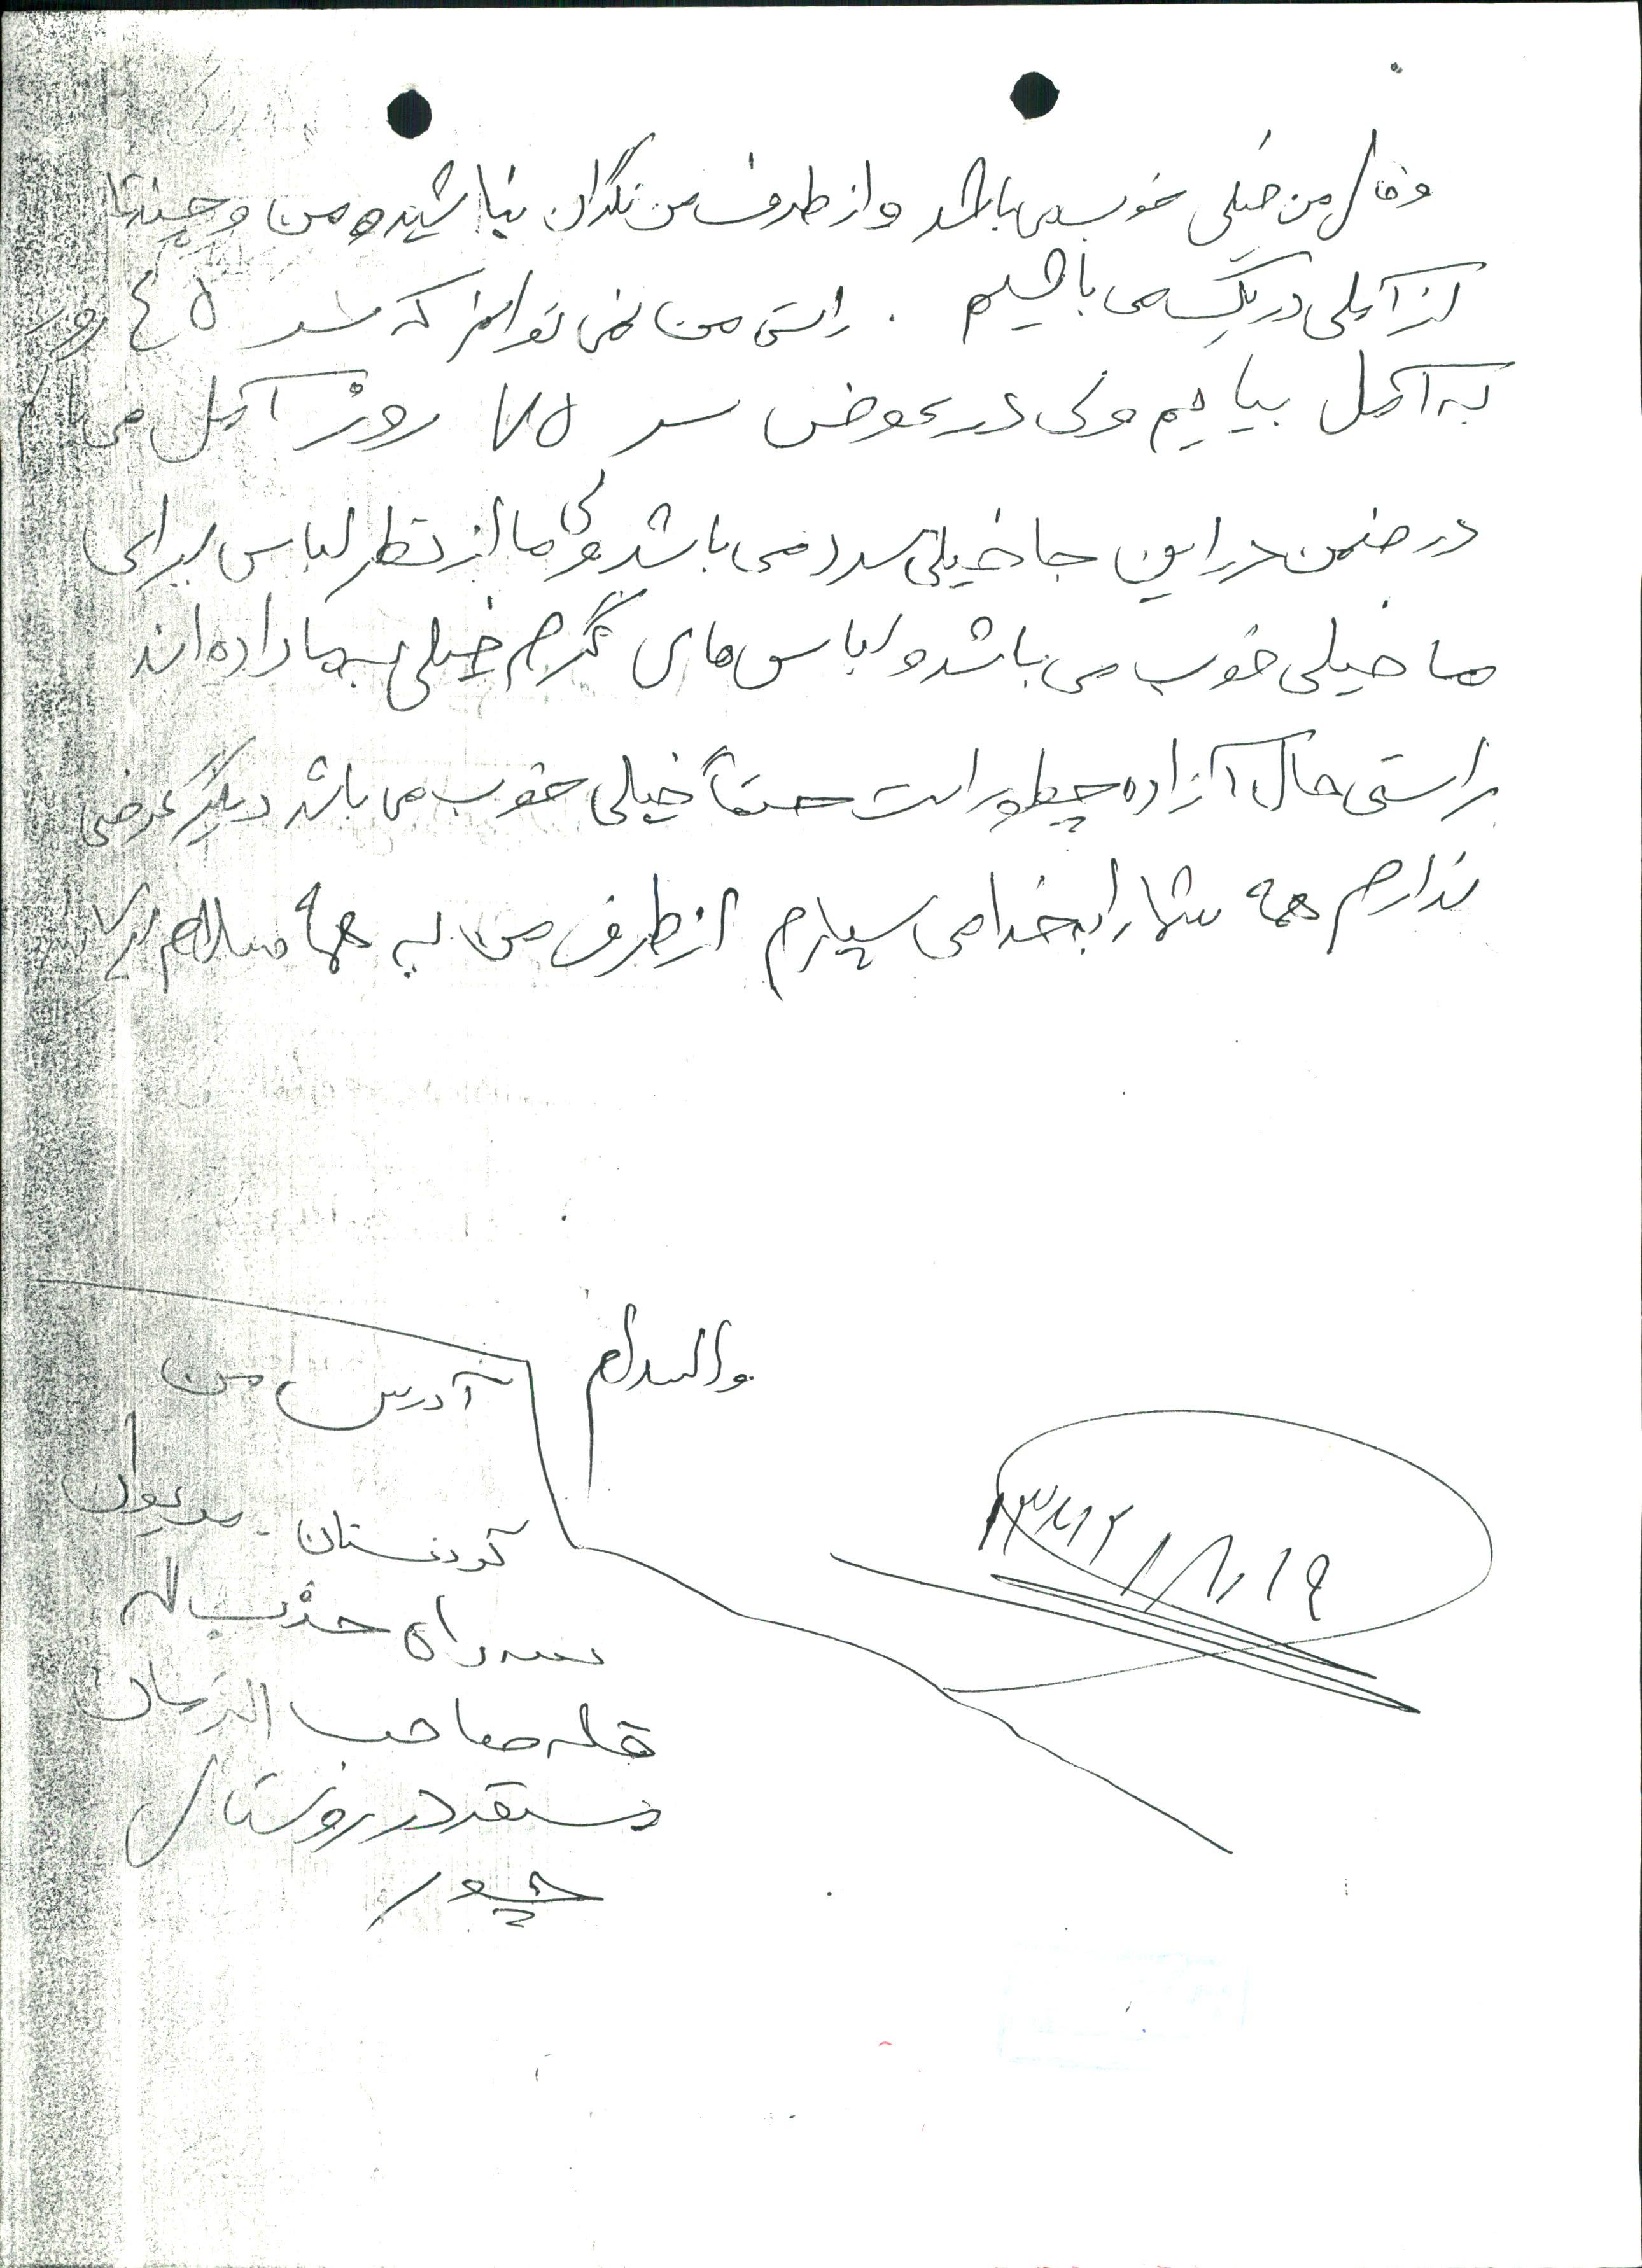 و حال من خیلی خوب می باشد و از طرف من نگران نباشید و من و چندتا
از آملی در یک می باشیم . راستی من نمی توانم که سر ٤٥ روز
به آمل بیایم ولی در عوض سر ٧٥ روز آمل می
در ضمن در این جا خیلی سرد می باشد ولی ما از نظر لباس برای
ما خیلی خوب می باشد و لباس های گرم خیلی به ما داده اند
راستی حال آزاده چطور است حتماً خیلی خوب می باشد دیگر عرضی
ندارم همه شما را بخدا می سپارم از طرف من به همه سلام
والسلام
١٣٦٢/٨/١٩
آدرس من
کردستان - مریوان
سه راه حزب اله
قله صاحب الزمان
مستقر در روستای
چور